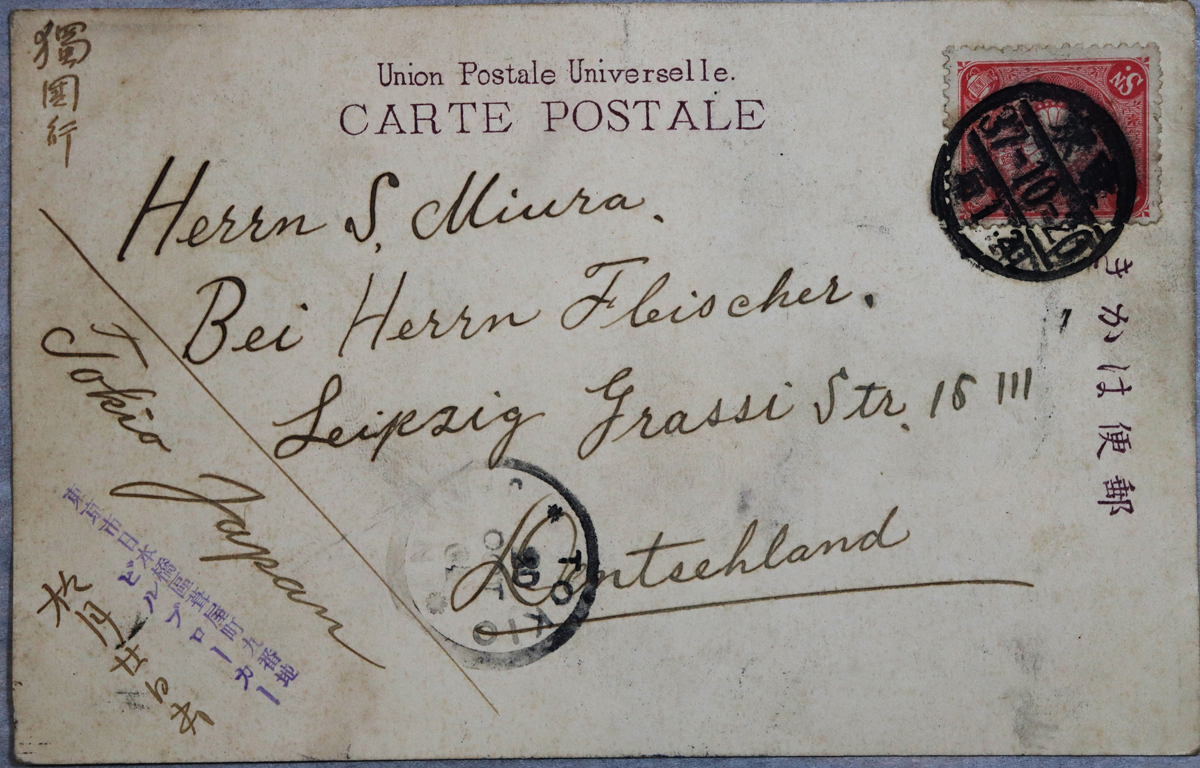 獨国行
Union Postale Universelle.
CARTE POSTALE
Herrn S. Miura.
Bei Herrn Fleischer.
Leipzig Grassi Str. 16 III
Deutschland
Tokio Japan
東京市日本橋區葺屋町九番地
ビルブローカー
37-10-20
TOKIO
きかは便郵